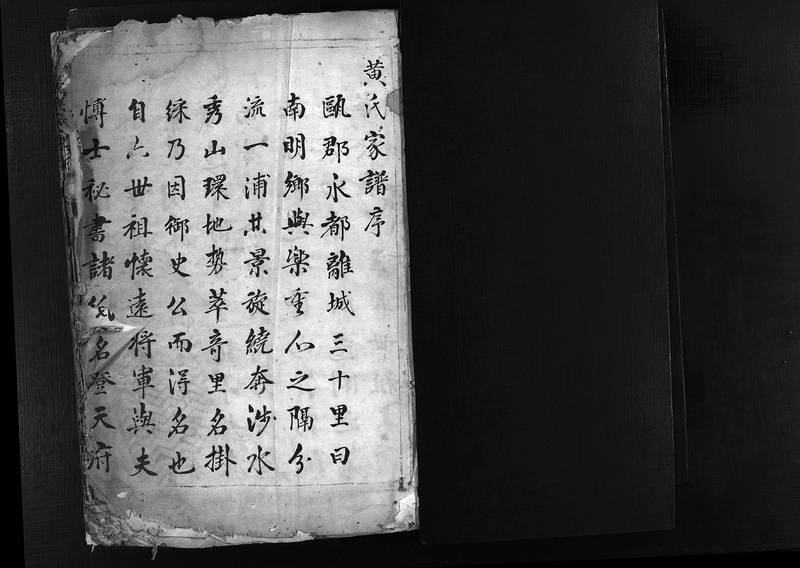 黄氏家譜序
甌郡永都離城三十里曰
南明鄉與樂重山之隔分
流一浦其景旋繞奔涉水
秀山環地勢萃奇里名掛
綵乃因御史公而淂名也
自六世祖懷遠将軍與夫
博士祕書諸公名登天府